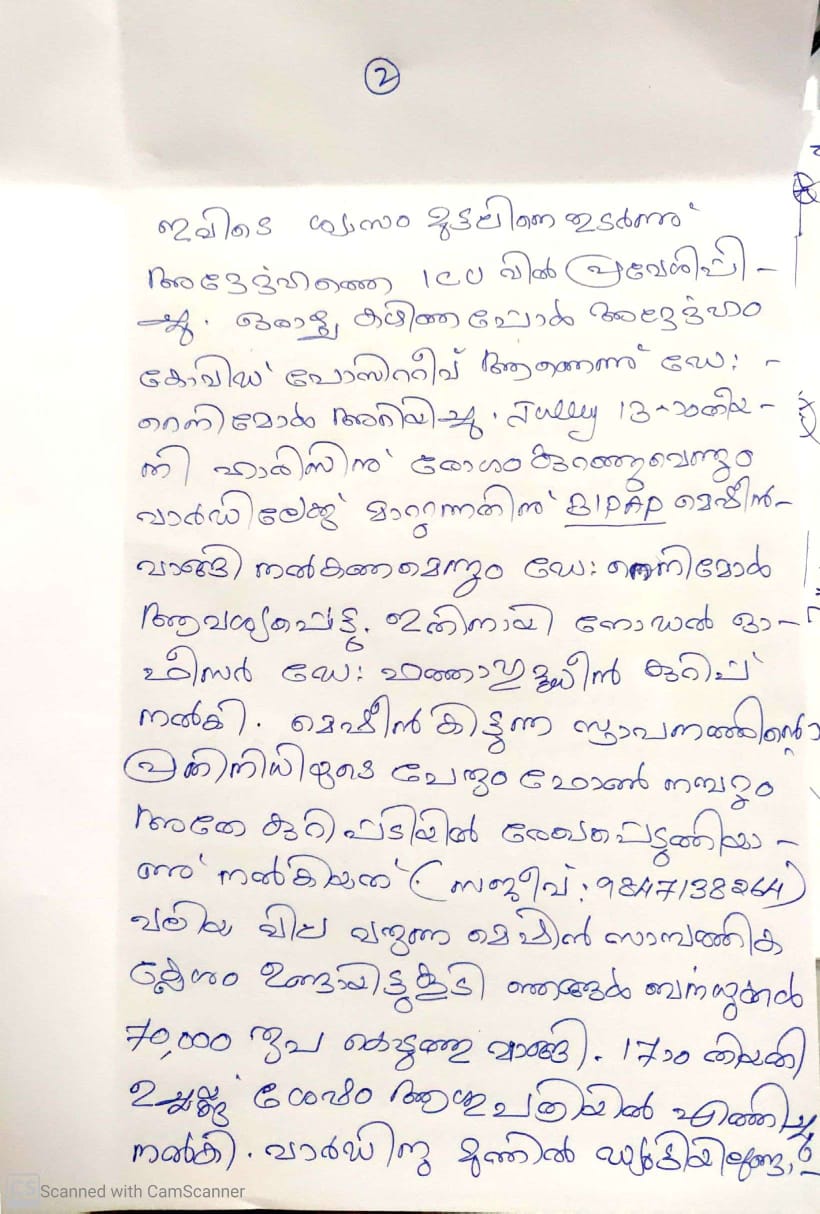 ②
ഇവിടെ ശ്വാസം മുട്ടലിനെ തുടർന്ന്
അദ്ദേഹത്തെ ICU വിൽ പ്രവേശിപ്പി –
ച്ചു. ഒരാഴ്ച കഴിഞ്ഞപ്പോൾ അദ്ദേഹം
കോവിഡ് പോസിററീവ് ആണെന്ന് ഡോ: –
റെനിമോൾ അറിയിച്ചു. July 13-ാംതീയ –
തി ഹാരിസിന് രോഗം കുറഞ്ഞുവെന്നും
വാർഡിലേക്ക് മാറ്റുന്നതിന് BIPAP മെഷീൻ –
വാങ്ങി നൽകണമെന്നും ഡോ: റെനിമോൾ
ആവശ്യപ്പെട്ടു. ഇതിനായി നോഡൽ ഓ –
ഫീസർ ഡോ: ഫത്താഹുദ്ദീൻ കുറിപ്പ്
നൽകി. മെഷീൻ കിട്ടുന്ന സ്ഥാപനത്തിന്റെ
പ്രതിനിധിയുടെ പേരും ഫോൺ നമ്പറും
അതേ കുറിപ്പടിയിൽ രേഖപ്പെടുത്തിയാ –
ണ് നൽകിയത് (സജീവ്: 9847138264)
വലിയ വില വരുന്ന മെഷീൻ സാമ്പത്തിക
ക്ലേശം ഉണ്ടായിട്ടുകൂടി ഞങ്ങൾ ബന്ധുക്കൾ
70,000 രൂപ കൊടുത്തു വാങ്ങി. 17ാം തിയതി
ഉച്ചയ്ക്ക് ശേഷം ആശുപത്രിയിൽ എത്തിച്ചു
നൽകി. വാർഡിനു മുന്നിൽ ഡ്യൂട്ടിയിലുണ്ടാ
CS Scanned with CamScanner